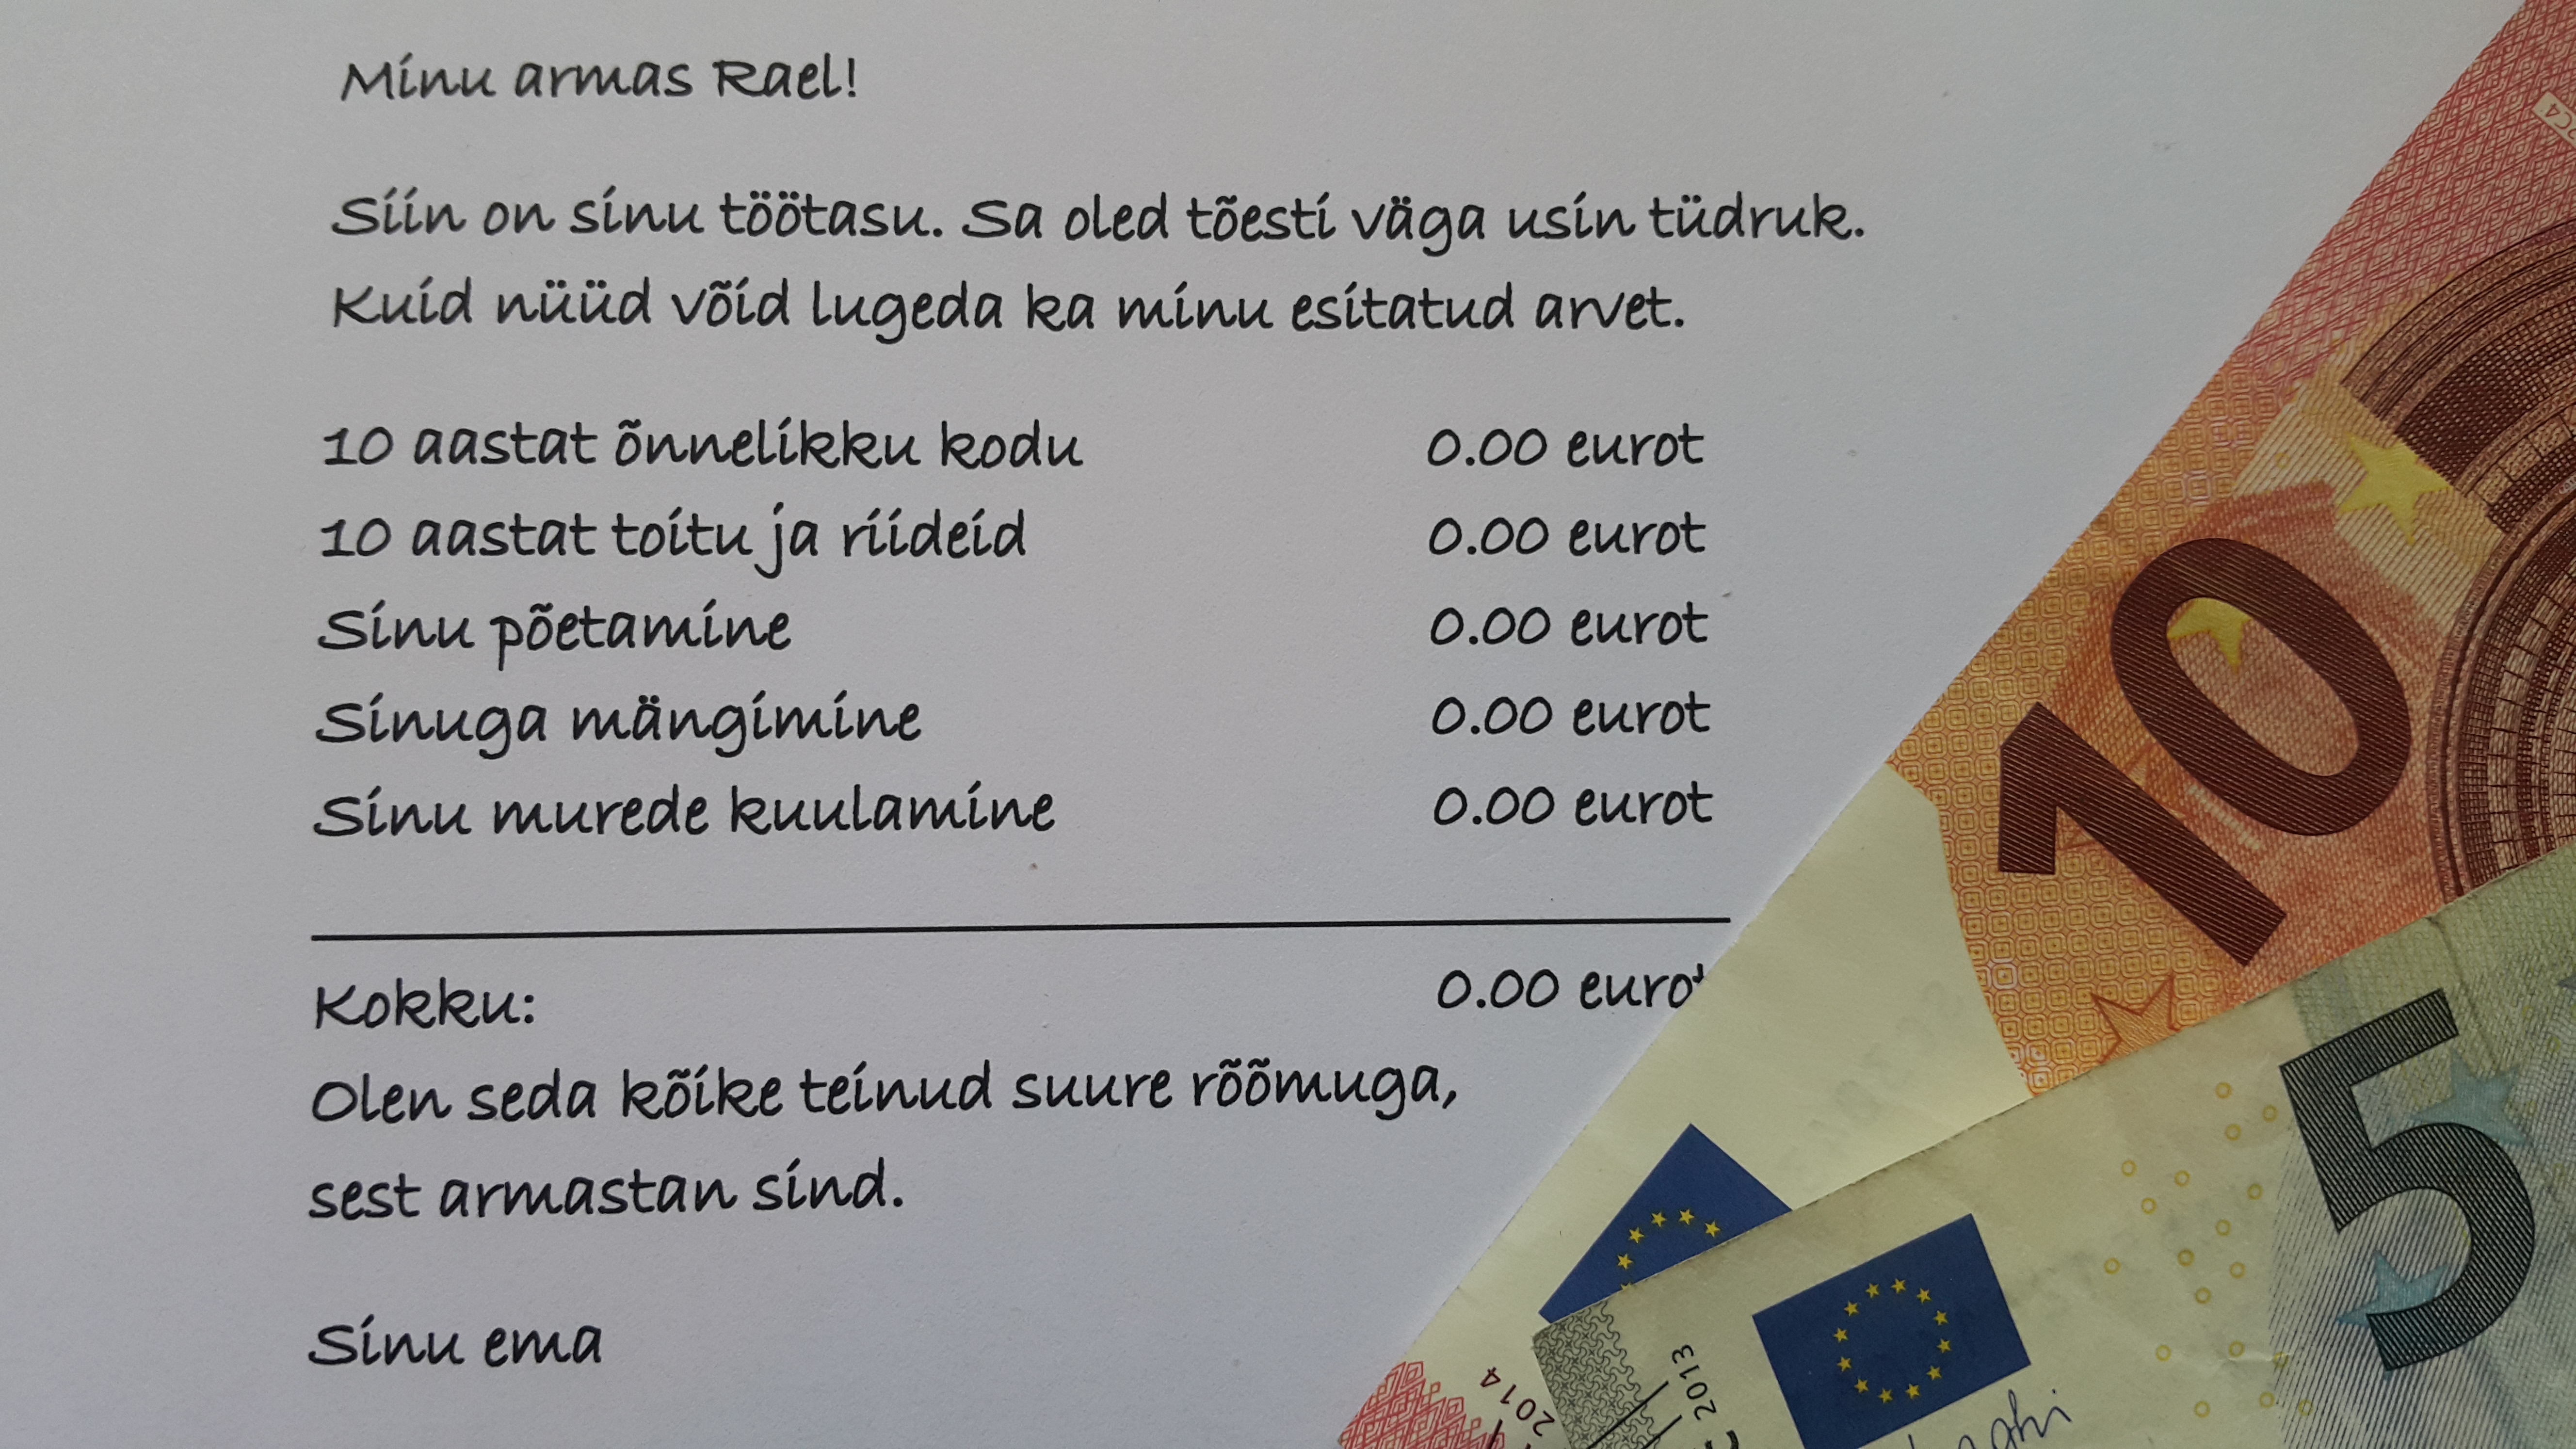 Minu armas Rael!
Siin on sinu töötasu. Sa oled tõesti väga usin tüdruk.
Kuid nüüd võid lugeda ka minu esitatud arvet.
10 aastat õnnelikku kodu 0.00 eurot
10 aastat toitu ja riideid 0.00 eurot
Sinu põetamine 0.00 eurot
Sinuga mängimine 0.00 eurot
Sinu murede kuulamine 0.00 eurot
Kokku: 0.00 eurot
Olen seda kõike teinud suure rõõmuga,
sest armastan sind.
Sinu ema
10
5
2014
2013